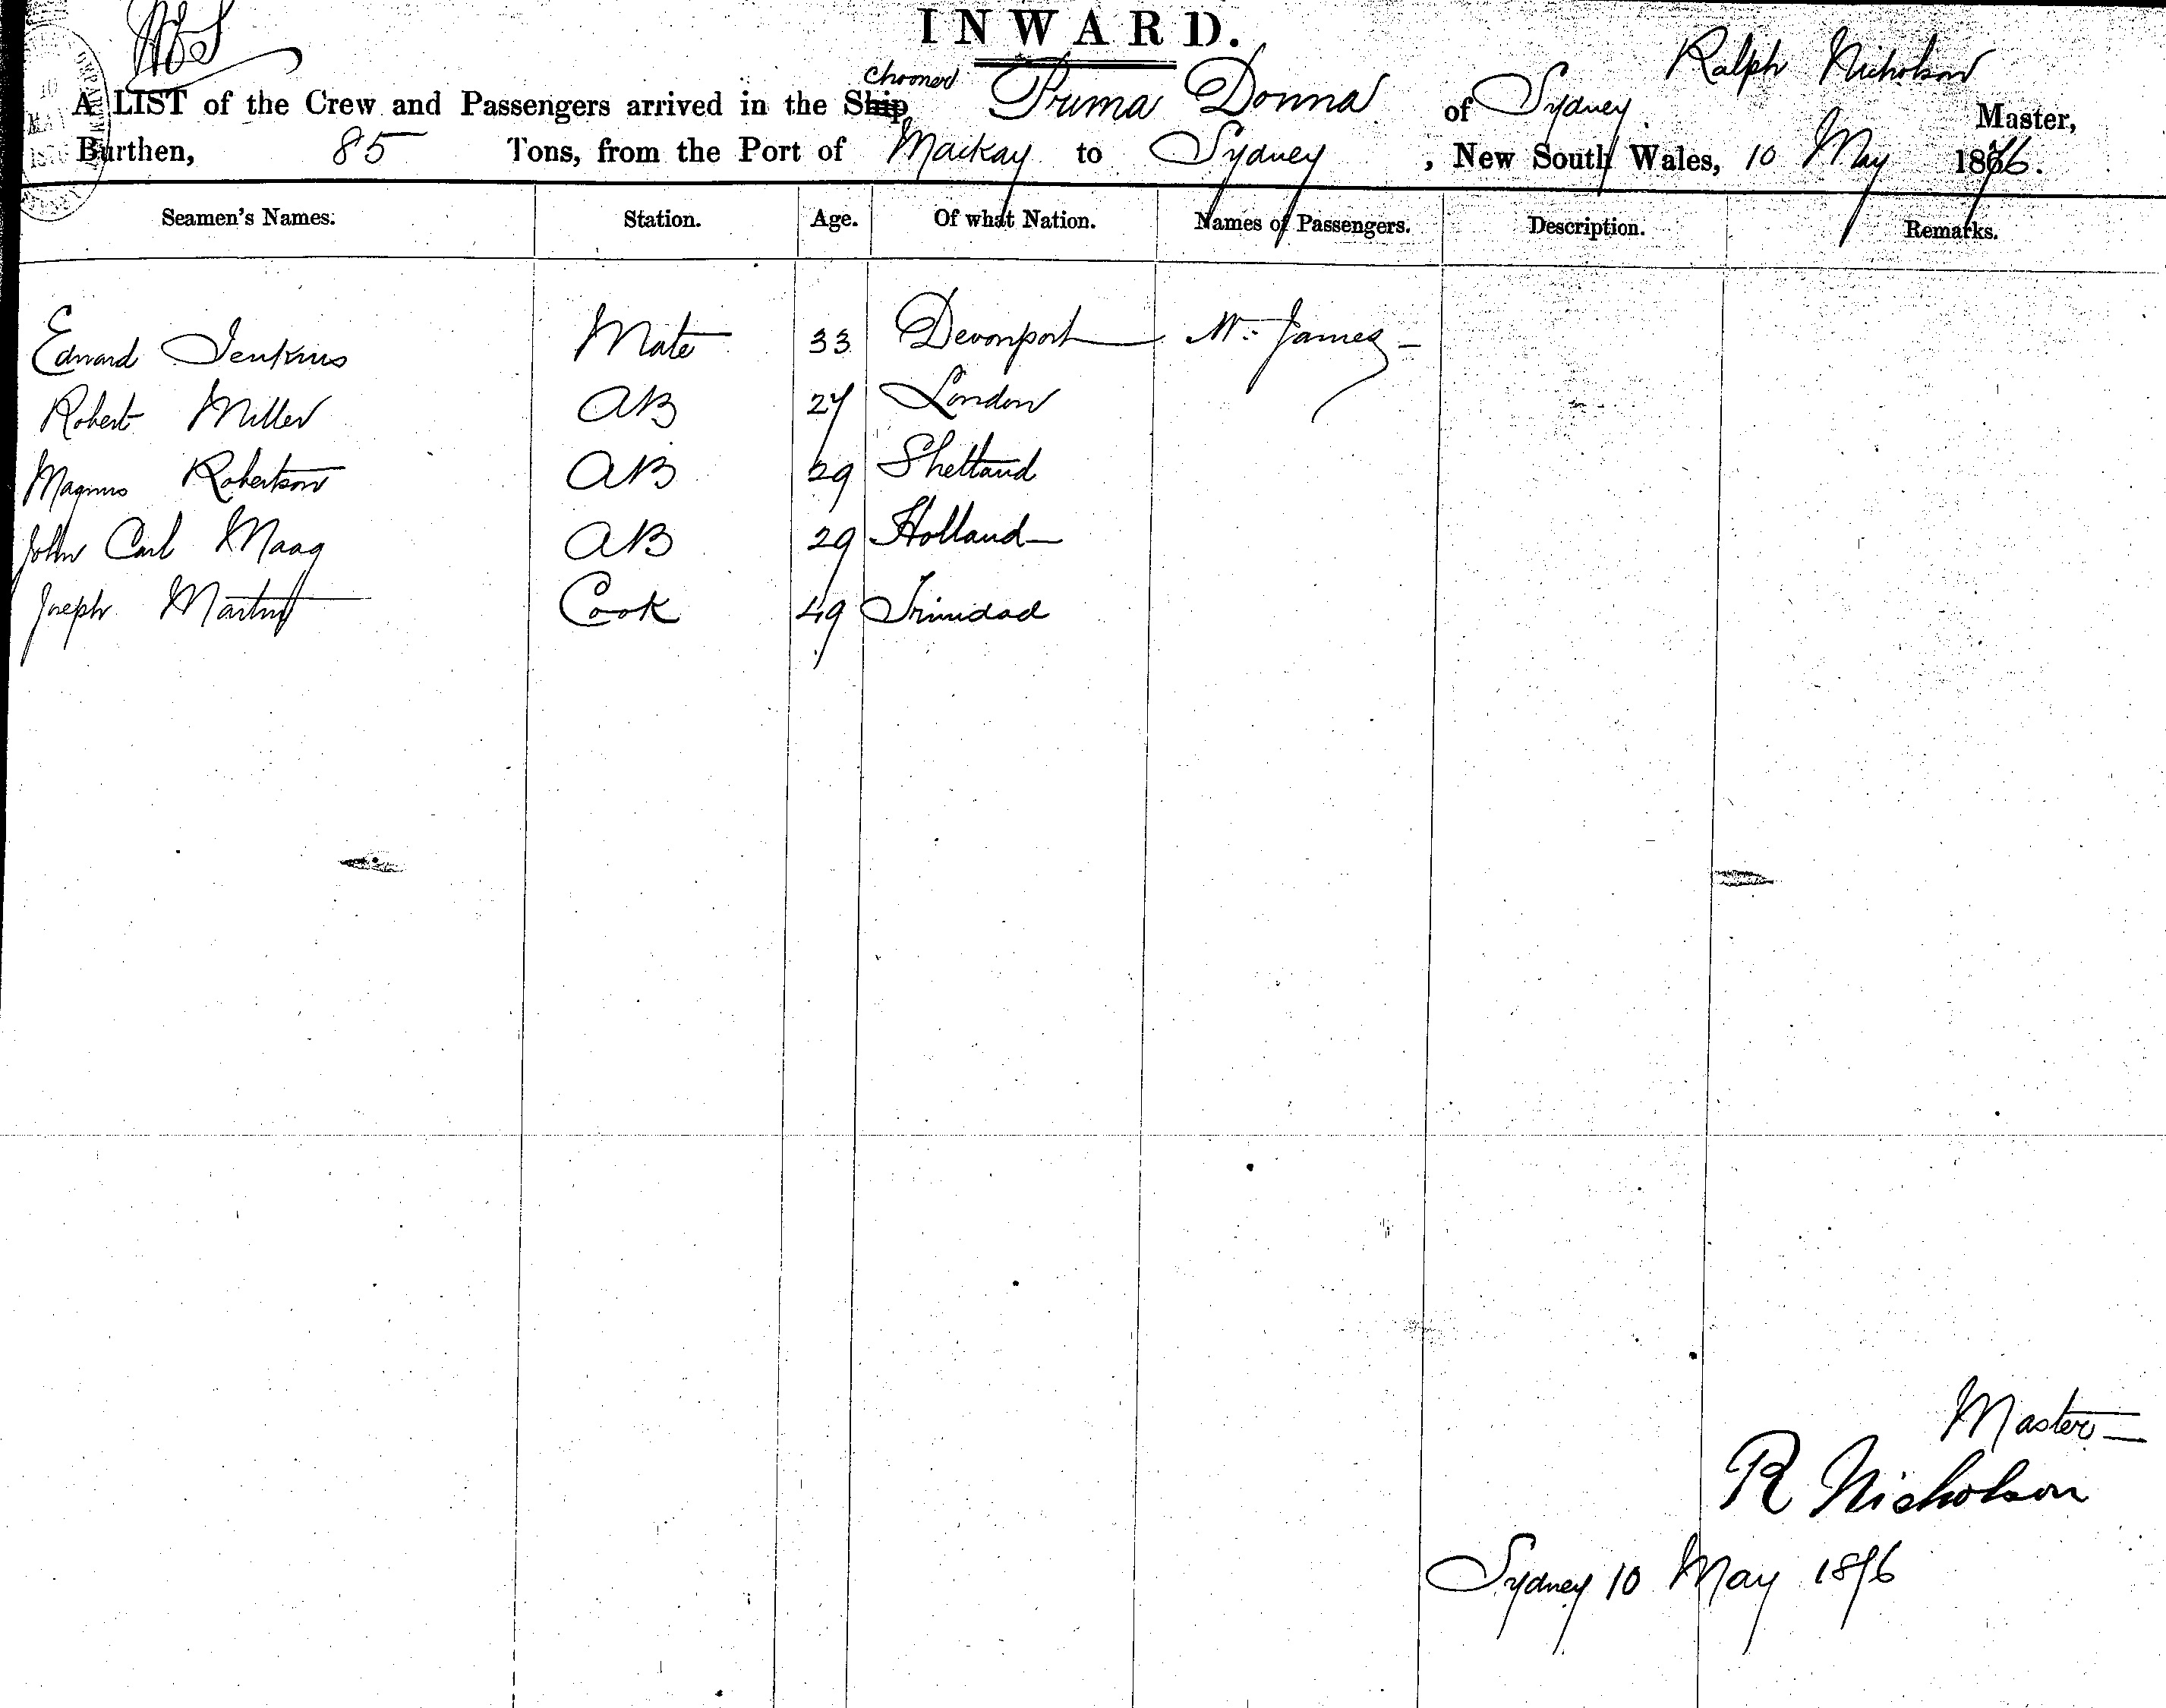 INWARD.
A LIST of the Crew and Passengers arrived in the Schooner Prima Donna of Sydney Ralph Nicholson Master,
Burthen, 85 Tons, from the Port of Mackay to Sydney, New South Wales, 10 May 1876.
Seamen's Names. Station. Age. Of what Nation. Names of Passengers. Description. Remarks.
Edward Jenkins Mate 33 Devonport Mr James
Robert Miller AB 27 London
Magnus Robertson AB 29 Shetland
John Carl Maag AB 29 Holland
Joseph Martin Cook 49 Trinidad
Master
R Nicholson
Sydney 10 May 1876